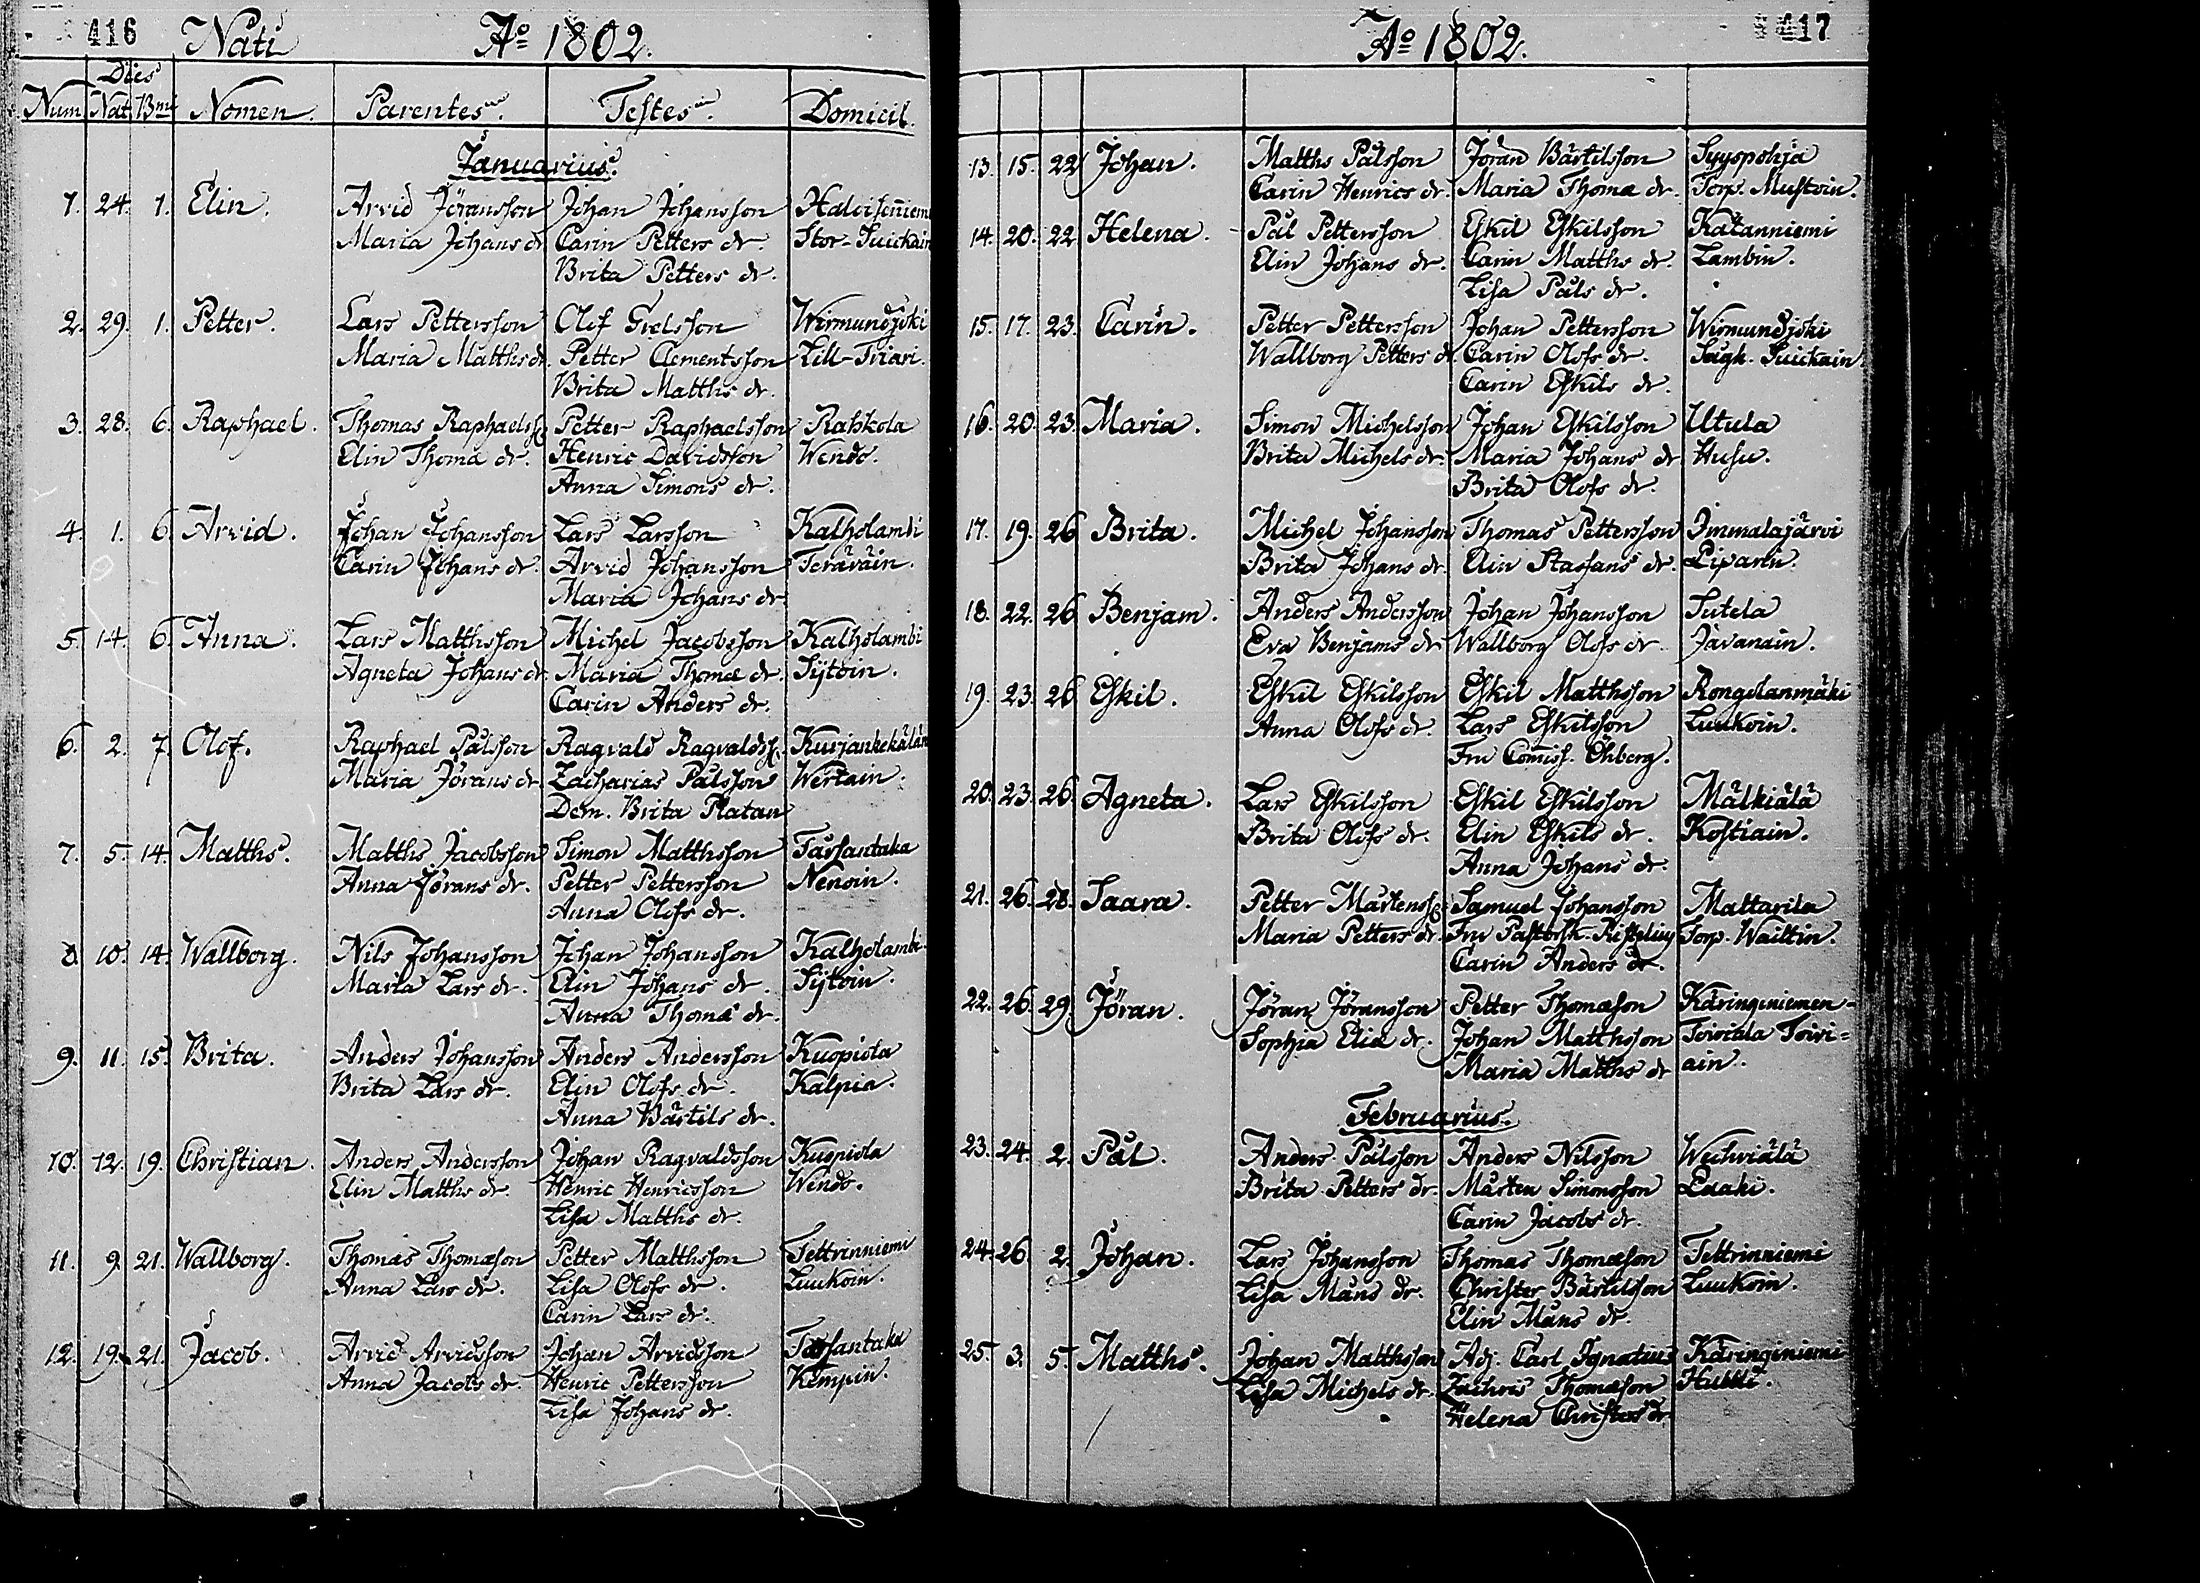 416 Nati Aº 1802.
Dies
Num. Nat. Bmi Nomen. Parentes. Testes. Domicil.
Januarius.
1. 24. 1. Elin. Arvid Jöransson Johan Johansson
Maria Johans dr Carin Petters dr. Stor-Suickain
Brita Petters dr.
2. 29. 1. Petter. Lars Pettersson Olof Grelsson Wirmundjoki
Maria Matths dr. Petter Clementsson Lill-Twiari.
Brita Matths dr.
3. 28. 6. Raphael. Thomas Raphaelss. Petter Raphaelsson Rahkola
Elin Thomæ dr. Henric Davidsson Wendo.
Anna Simons dr.
4. 1. 6. Arvid. Johan Johansson Lars Larsson Kalholambi
Carin Johans dr. Arvid Johansson Teräväin.
Maria Johans dr
5. 14. 6. Anna. Lars Matthsson Michel Jacobsson Kalholambi
Agneta Johans dr. Maria Thomæ dr. Sijtoin.
Carin Anders dr.
6. 2. 7. Olof. Raphael Pålsson Ragvald Ragvaldss.
Maria Jörans dr. Zacharias Pålsson Wertain.
Dem. Brita Platan
7. 5. 14. Matths. Matths Jacobsson Simon Matthsson Tassantaka
Anna Jörans dr. Petter Pettersson Nenoin.
Anna Olofs dr.
8. 10. 14. Wallborg. Nils Johansson Johan Johansson Kalholambi
Maria Lars dr. Elin Johans dr. Sijtoin.
Anna Thomæ dr.
9. 11. 15. Brita. Anders Johansson Anders Andersson Kuopiola
Brita Lars dr. Elin Olofs dr. Kalpia.
Anna Bärtils dr.
10. 12. 19. Christian. Anders Andersson Johan Ragvaldsson Kuopiola
Elin Matths dr. Henric Henricsson Wendo.
Lisa Matths dr.
11. 9. 21. Wallborg. Thomas Thomæson Petter Matthsson Tettrinniemi
Anna Lars dr. Lisa Olofs dr. Luukoin.
Carin Lars dr.
12. 19. 21. Jacob. Arvid Arvidsson Johan Arvidsson Tassantaka
Anna Jacobs dr. Henric Pettersson Kempin.
Lisa Johans dr.
417
Aº 1802.
13. 15. 22. Johan. Matths Pålsson Jöran Bärtilsson Syyspohja
Carin Henrics dr. Maria Thomæ dr. Torp. Mustoin.
14. 20. 22. Helena. Pål Pettersson Eskil Eskilsson Kätanniemi
Elin Johans dr. Carin Matths dr. Lambin.
Lisa Påls dr.
15. 17. 23. Carin. Petter Pettersson Johan Pettersson Wirmundjoki
Wallborg Petters dr. Carin Olofs dr. Suickain
Carin Eskils dr.
16. 20. 23. Maria. Simon Michelsson Johan Eskilsson Utula
Brita Michels dr. Maria Johans dr. Husu.
Brita Olofs dr.
17. 19. 26. Brita. Michel Johansson Thomas Pettersson Immalajärvi
Brita Johans dr. Elin Staffans dr. Liparin.
18. 22. 26. Benjam. Anders Andersson Johan Johansson Sutela
Eva Benjams dr Wallborg Olofs dr. Javanain.
19. 23. 26. Eskil. Eskil Eskilsson Eskil Matthsson Rongolanmäki
Anna Olofs dr. Lars Eskilsson Luukoin.
Fru Comiss. Öhberg.
20. 23. 26. Agneta. Lars Eskilsson Eskil Eskilsson Mälkiälä
Brita Olofs dr. Elin Eskils dr. Kostiain.
Anna Johans dr.
21. 26. 28. Saara. Petter Mårtenss. Samuel Johansson Mattarila
Maria Petters dr. Fru Pastorsk. Ristelius Torp. Wailtin.
Carin Anders dr.
22. 26. 29. Jöran. Jöran Jöransson Petter Thomæson Käringiniemen-
Sophia Eliæ dr. Johan Matthsson Toivtala Toivi=
Maria Matths dr ain.
Februarius.
23. 24. 2. Pål. Anders Pålsson Anders Nilsson Wechviälä
Brita Petters dr. Mårten Simonsson Laaki.
Carin Jacobs dr.
24. 26. 2. Johan. Lars Johansson Thomas Thomæson Tettrinniemi
Lisa Måns dr. Christer Bärtilsson Luukoin.
Elin Måns dr.
25. 3. 5. Matths. Johan Matthsson Adj. Carl Ignatius Käringiniemi
Lisa Michels dr. Zachris Thomæson Hukki.
Helena Christers dr